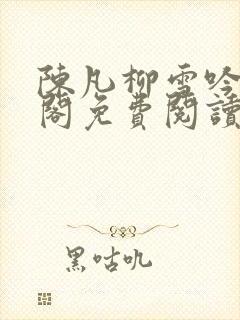 陳凡柳雪吟
閣免費閱讀
黑咕吼